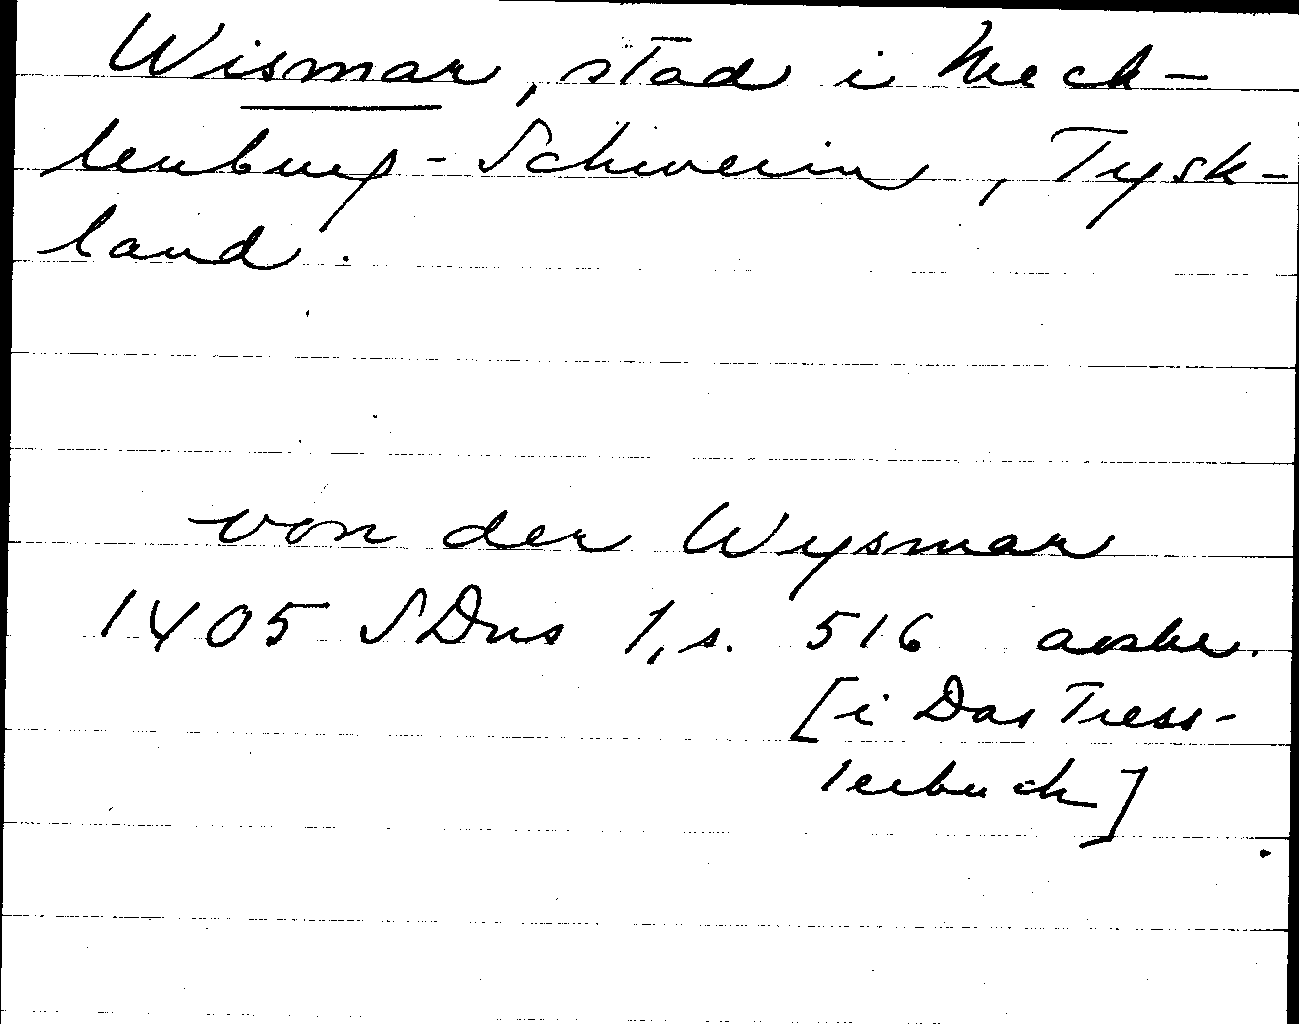 Wismar, stad i Meck-
lenburg-Schwerin, Tysk-
land.
von der Wysmar
1405 SDns 1, s. 516 avskr.
[i Das Tress-
lerbuch]